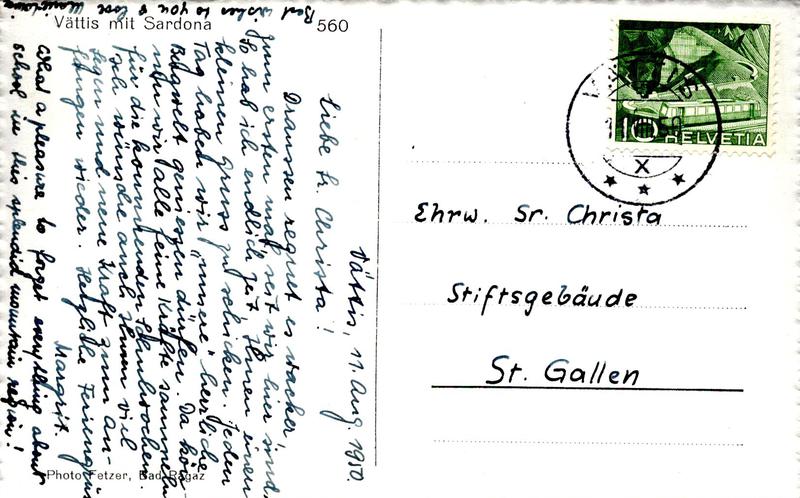 Vättis mit Sardona
560
Vättis, 11. Aug. 1950.
Liebe Sr. Christa!
Draussen regnet es wacker,
zum ersten mal seit wir hier sind.
So hab ich endlich Zeit Ihnen einen
kleinen Gruss zu schicken. Jeden
Tag haben wir "unsere" herrliche
Bergwelt geniessen dürfen. Da kön-
nen wir alle feine Kräfte sammeln
für die kommenden Schulwochen.
Ich wünsche auch Ihnen viel
Segen und neue Kraft zum an-
fangen wieder. Herzliche Feriengrüsse
Margrit.
What a pleasure to forget everything about
school in this splendid mountain region!
Best wishes to you & love
Photo Fetzer, Bad Ragaz
10 HELVETIA
X
Ehrw. Sr. Christa
Stiftsgebäude
St. Gallen